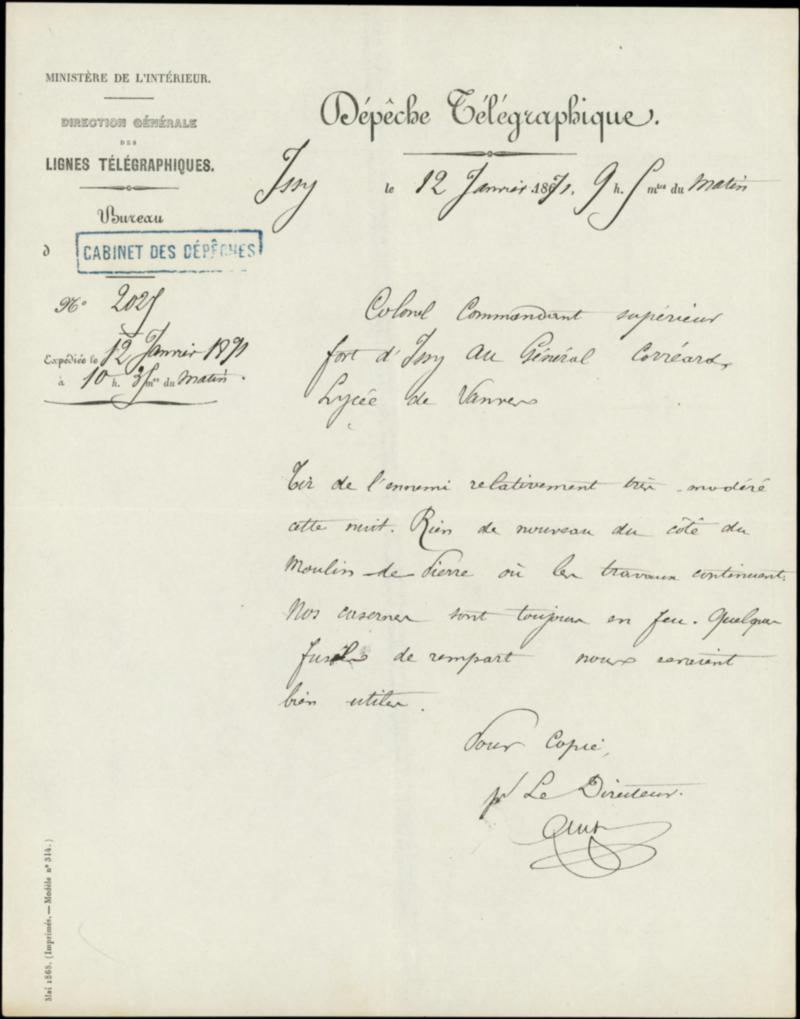 MINISTÈRE DE L'INTÉRIEUR.
DIRECTION GÉNÉRALE
DES
LIGNES TÉLÉGRAPHIQUES.
Bureau
d CABINET DES DÉPÊCHES
N° 2027
Expédiée le 12 Janvier 1871
à 10 h. 35 mes du Matin.
Dépêche Télégraphique.
Issy le 12 Janvier 1871. 9 h. 5 mes du Matin
Colonel Commandant supérieur
fort d'Issy au Général Corréard,
Lycée de Vanves
Tir de l'ennemi relativement très modéré
cette nuit. Rien de nouveau du côté du
Moulin de Pierre où les travaux continuent.
Nos casernes sont toujours en feu. Quelques
fusils de rempart nous seraient
bien utiles.
Pour Copie,
pr Le Directeur.
Mai 1868. (Imprimés. — Modèle n° 314.)